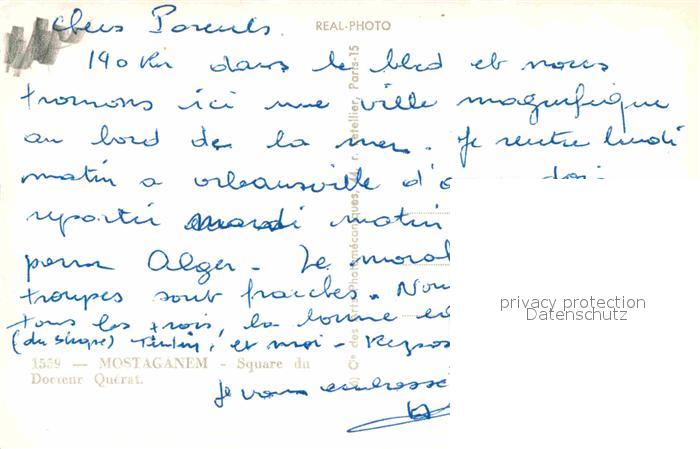 chers Parents.
REAL-PHOTO
140 Km dans le bled et nous
trouvons ici une ville magnifique
au bord de la mer. Je rentre lundi
matin a orleansville d'o
repartir mardi matin
pour Alger - Le moral
troupes sont fraiches. Nou
tous les trois, la bonne
(du singe) Tintin, et moi -
1559 — MOSTAGANEM - Square du
Docteur Quérat.
Je vous embrasse
privacy protection
Datenschutz